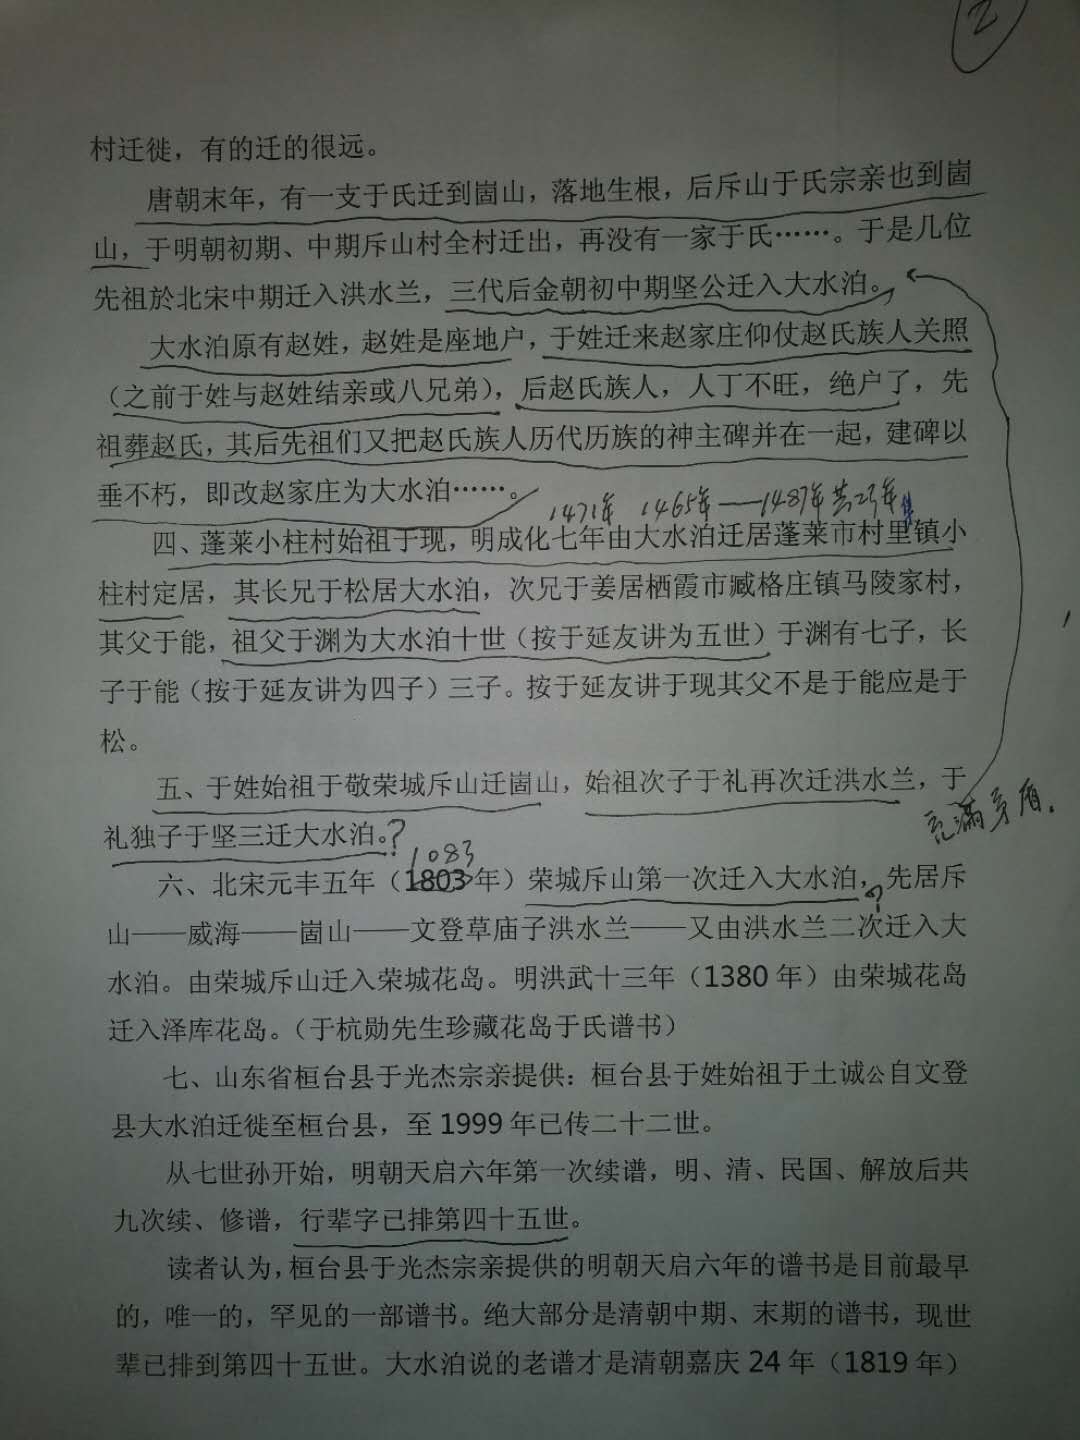 2
村迁徙，有的迁的很远。
唐朝末年，有一支于氏迁到崮山，落地生根，后斥山于氏宗亲也到崮
山，于明朝初期、中期斥山村全村迁出，再没有一家于氏……。于是几位
先祖於北宋中期迁入洪水兰，三代后金朝初中期坚公迁入大水泊。
大水泊原有赵姓，赵姓是座地户，于姓迁来赵家庄仰仗赵氏族人关照
（之前于姓与赵姓结亲或八兄弟），后赵氏族人，人丁不旺，绝户了，先
祖葬赵氏，其后先祖们又把赵氏族人历代历族的神主碑并在一起，建碑以
垂不朽，即改赵家庄为大水泊……。
1471年 1465年——1487年共23年
四、蓬莱小柱村始祖于现，明成化七年由大水泊迁居蓬莱市村里镇小
柱村定居，其长兄于松居大水泊，次兄于姜居栖霞市臧格庄镇马陵家村，
其父于能，祖父于渊为大水泊十世（按于延友讲为五世）于渊有七子，长
子于能（按于延友讲为四子）三子。按于延友讲于现其父不是于能应是于
松。
五、于姓始祖于敬荣城斥山迁崮山，始祖次子于礼再次迁洪水兰，于
礼独子于坚三迁大水泊。？
充满矛盾。
1083
六、北宋元丰五年（1803年）荣城斥山第一次迁入大水泊，？先居斥
山——威海——崮山——文登草庙子洪水兰——又由洪水兰二次迁入大
水泊。由荣城斥山迁入荣城花岛。明洪武十三年（1380年）由荣城花岛
迁入泽库花岛。（于杭勋先生珍藏花岛于氏谱书）
七、山东省桓台县于光杰宗亲提供：桓台县于姓始祖于土诚公自文登
县大水泊迁徙至桓台县，至1999年已传二十二世。
从七世孙开始，明朝天启六年第一次续谱，明、清、民国、解放后共
九次续、修谱，行辈字已排第四十五世。
读者认为，桓台县于光杰宗亲提供的明朝天启六年的谱书是目前最早
的，唯一的，罕见的一部谱书。绝大部分是清朝中期、末期的谱书，现世
辈已排到第四十五世。大水泊说的老谱才是清朝嘉庆24年（1819年）